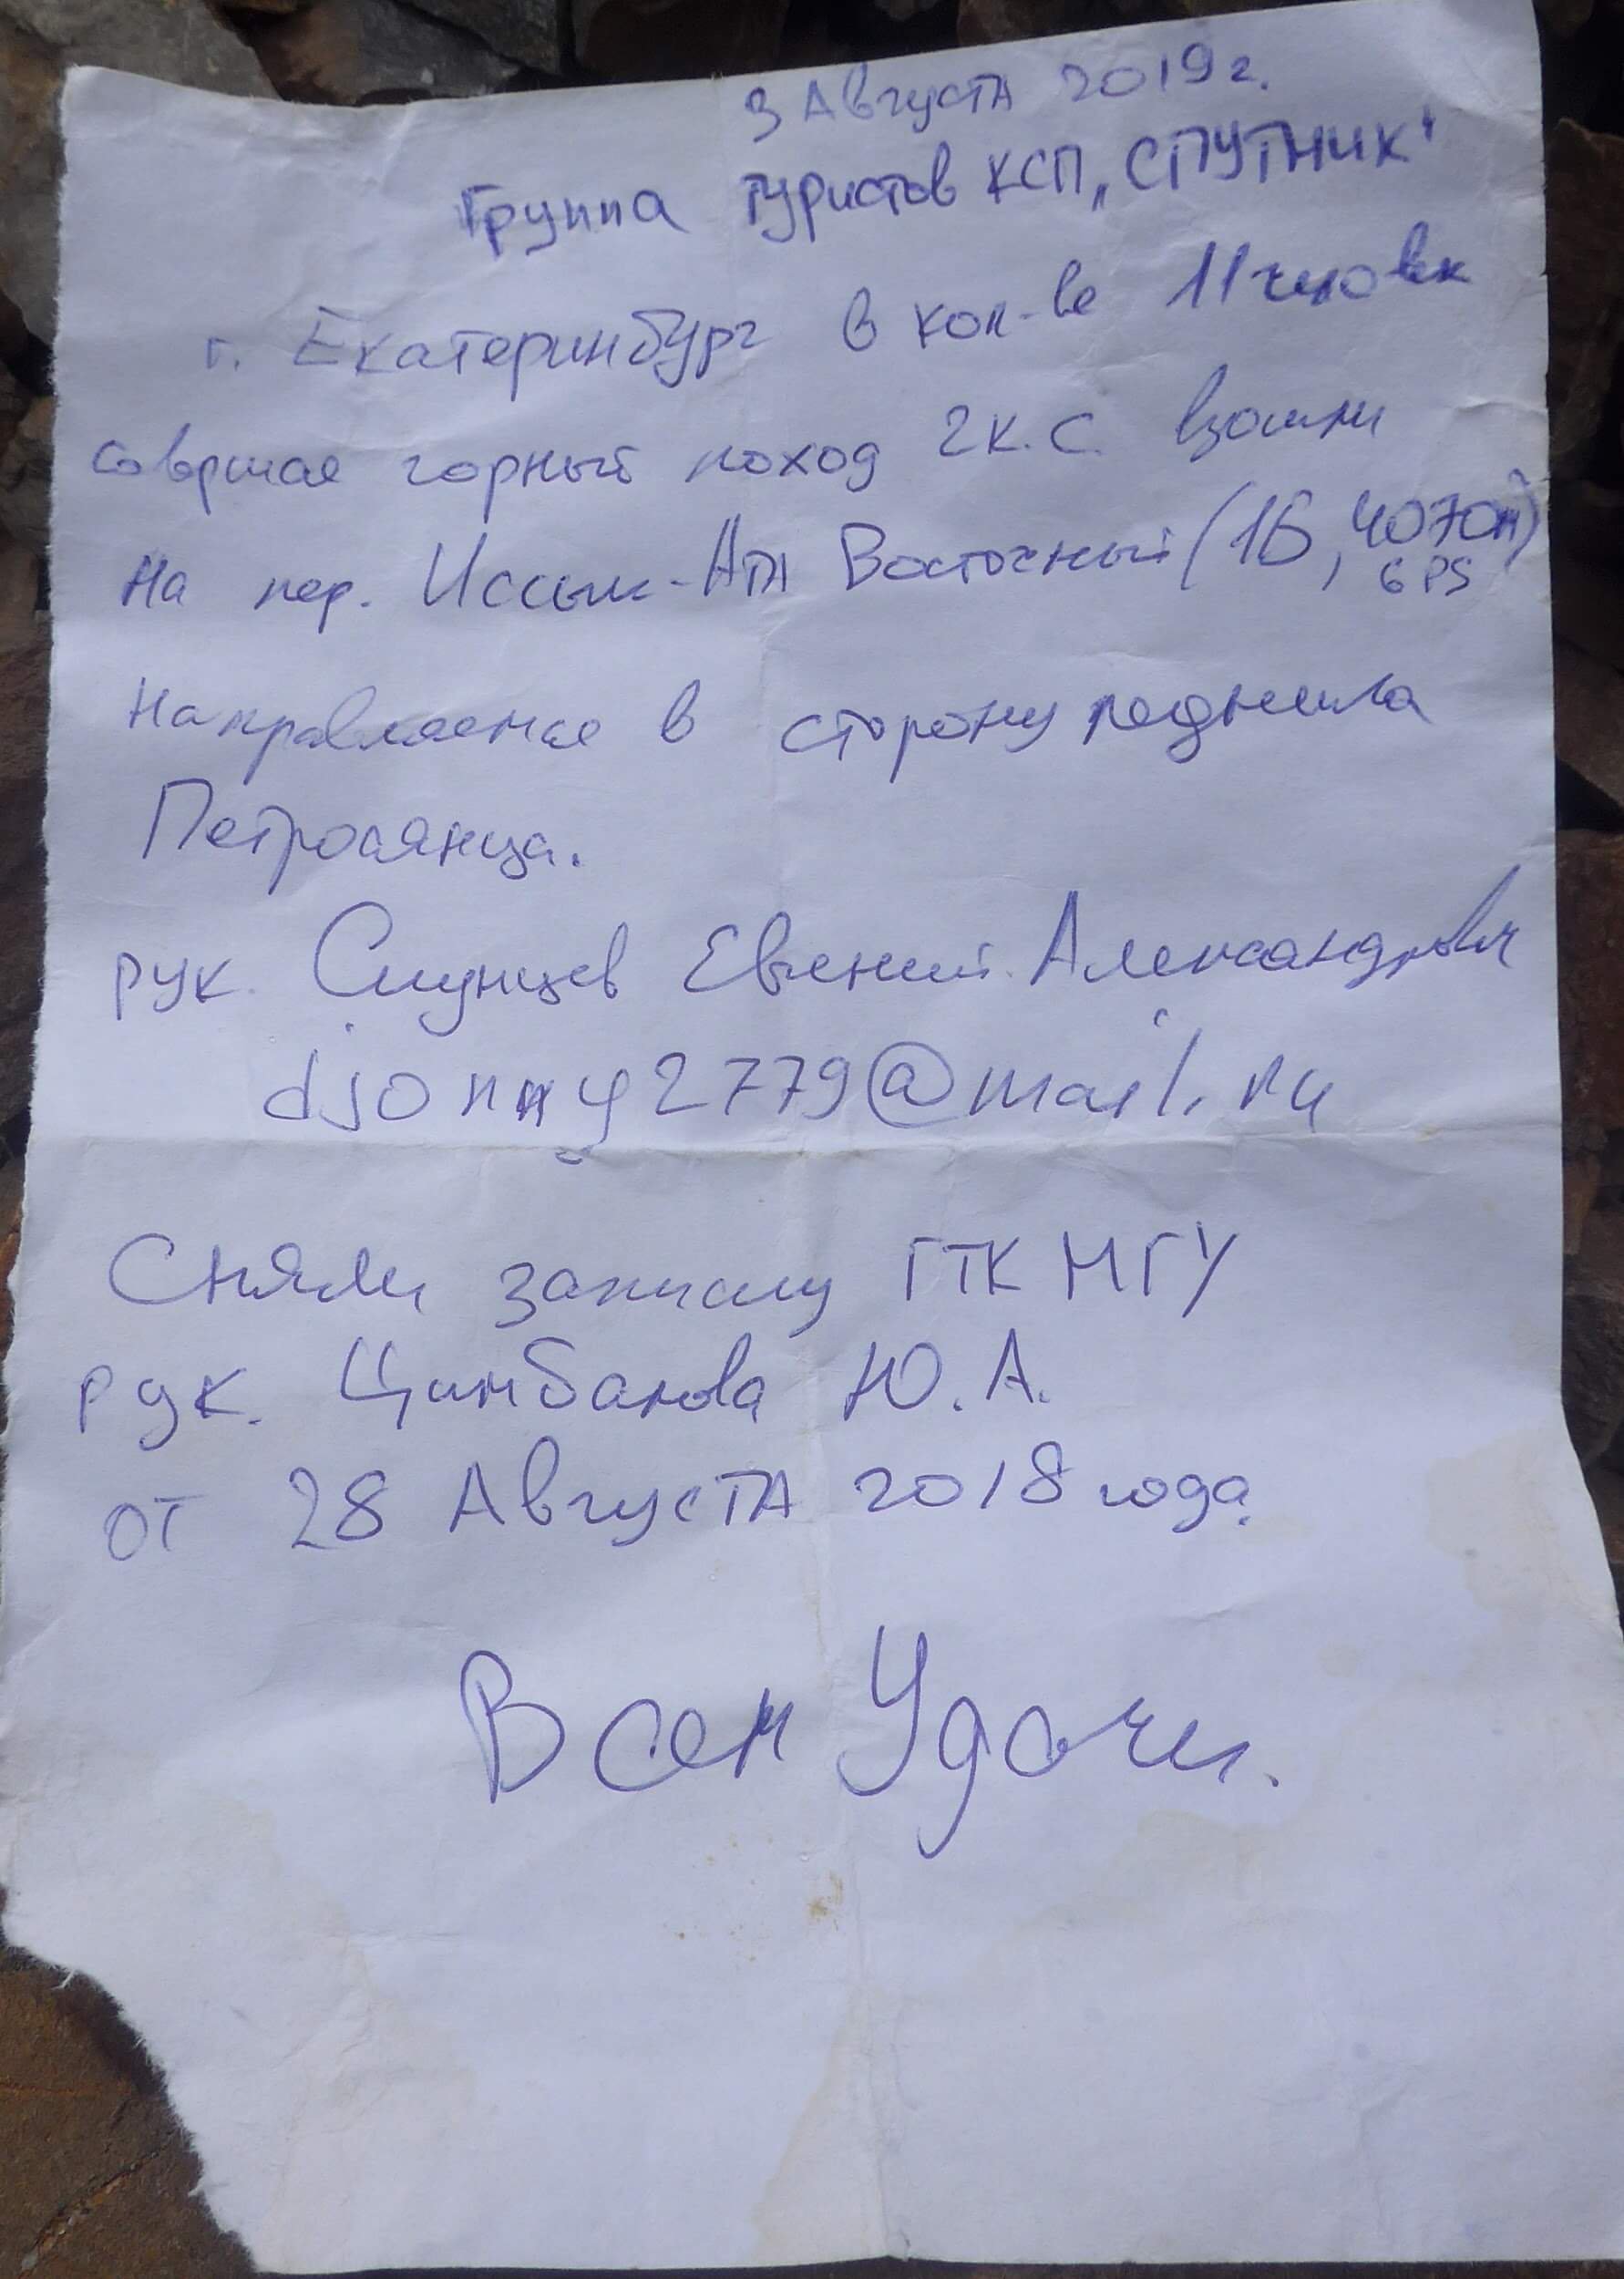 3 Августа 2019 г.
Группа туристов КСП „СПУТНИК"
г. Екатеринбург в кол-ве 11 человек
совершая горный поход 2 к.с. взошли
на пер. Иссык-Ата Восточный (1Б, 4070м)
GPS
Направляемся в сторону ледника
Петросянца.
рук. Евгений Александрович
djonny2779@mail.ru
Сняли записку ГТК МГУ
рук. Цимбалова Ю.А.
от 28 Августа 2018 года.
Всем Удачи.